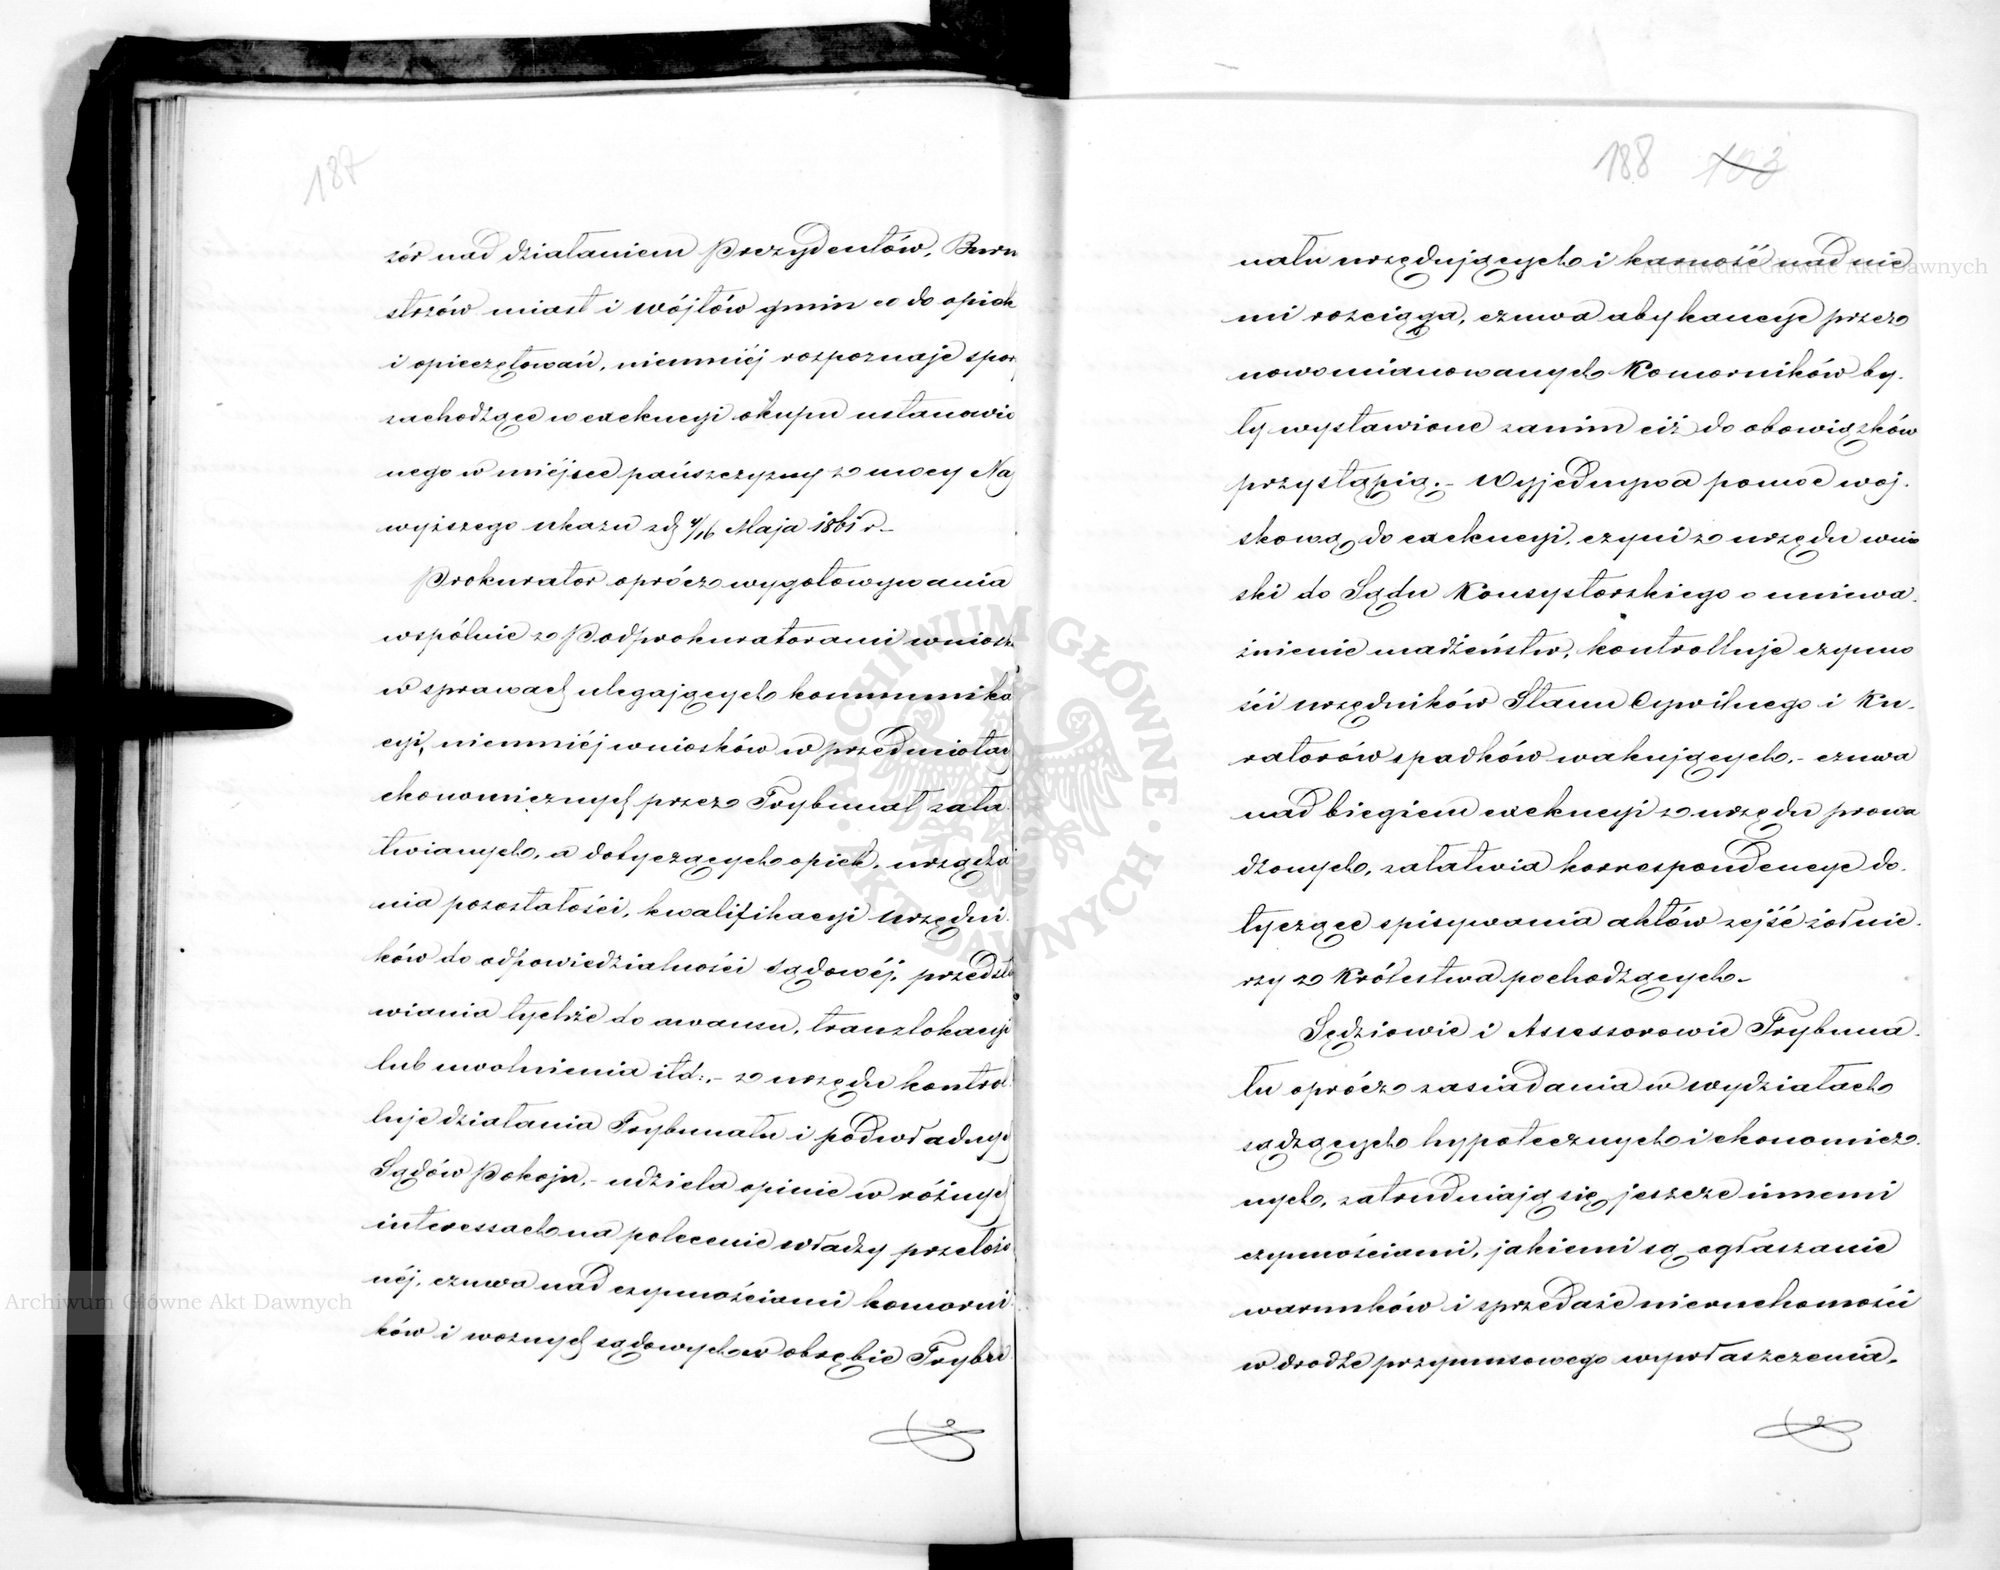 187
zór nad działaniem Prezydentów, Burm
strzów miast i Wójtów gmin co do opiek
i opieczętowań, niemniéj rozpoznaje spory
zachodzące w exekucyi okupu ustanowio
nego w miéjsce pańszczyzny z mocy Naj
wyższego ukazu zd 4/16 Maja 1861 r –
Prokurator oprócz wygotowywania
wspólnie z Podprokuratorami wniosk
w sprawach ulegających kommunika
cyi, niemniéj wniosków w przedmiotach
ekonomicznych przez Trybunał zała
twianych, a dotyczących opiek, urządza
nia pozostałości, kwalifikacyi urzędni
ków do odpowiedzialności sądowéj, przedsta
wiania tychże do awansu, translokacyi
lub uwolnienia itd:, – z urzędu kontrol
luje działania Trybunału i podwładnych
Sądów Pokoju, – udziela opinie w różnych
interessach na polecenie władzy przełożo
néj, czuwa nad czynnościami komorni
ków i woznych sądowych w obrębie Trybu
188 103
nału urzędujących i karność nad nie
mi rozciąga, czuwa aby kaucye przez
nowomianowanych Komorników by.
ły wystawione zanim ciż do obowiązków
przystąpią. – Wyjednywa pomoc woj.
skową do exekucyi, czyni z urzędu wnio
ski do Sądu Konsystorskiego o uniewa.
żnienie madżeństw, kontrolluje czynno
ści urzędników Stanu Cywilnego i Ku.
ratorów spadków wakujących, – czuwa
nad biegiem exekucyi z urzędu prowa
dzonych, załatwia korrespondencye do.
tyczące spisywania aktów zejść żołnie.
rzy z Królestwa pochodzących –
Sędziowie i Assessorowie Trybuna.
łu oprócz zasiadania w wydziałach
sądzących hypotecznych i ekonomicz.
nych, zatrudniają się jeszcze innemi
czynnościami, jakiemi są ogłaszanie
warunków i sprzedaże nieruchomości
w drodze przymusowego wywłaszczenia,
Archiwum Główne Akt Dawnych
Archiwum Główne Akt Dawnych
ARCHIWUM GŁÓWNE AKT DAWNYCH